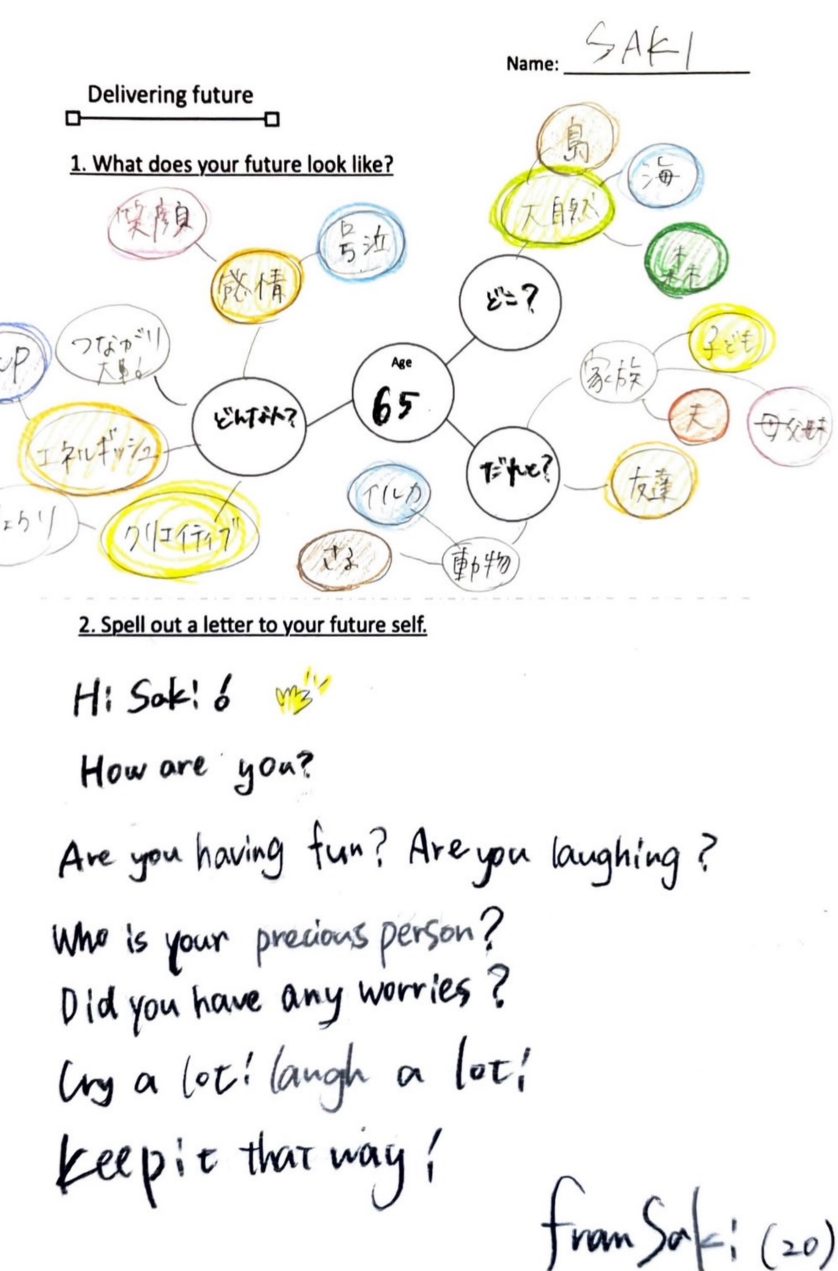 Name: SAKI
Delivering future
1. What does your future look like?
島
海
大自然
森
笑顔
号泣
感情
どこ?
つながり
大事!
UP
Age
65
どんな人?
家族
子ども
夫
母父妹
エネルギッシュ
だれと?
友達
イルカ
クリエイティブ
さる
動物
2. Spell out a letter to your future self.
Hi Saki!
How are you?
Are you having fun? Are you laughing?
Who is your precious person?
Did you have any worries?
Cry a lot! laugh a lot!
keep it that way!
from Saki (20)